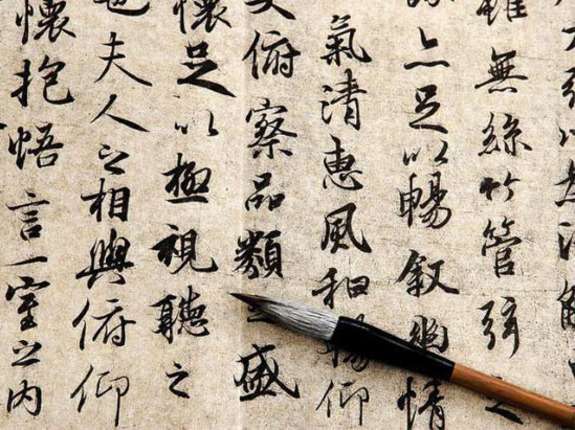 以為流
雖無絲竹管弦之
亦足以暢敘幽情
氣清惠風和暢仰
大俯察品類之盛
懷足以極視聽之
也夫人之相與俯仰
懷抱悟言一室之內